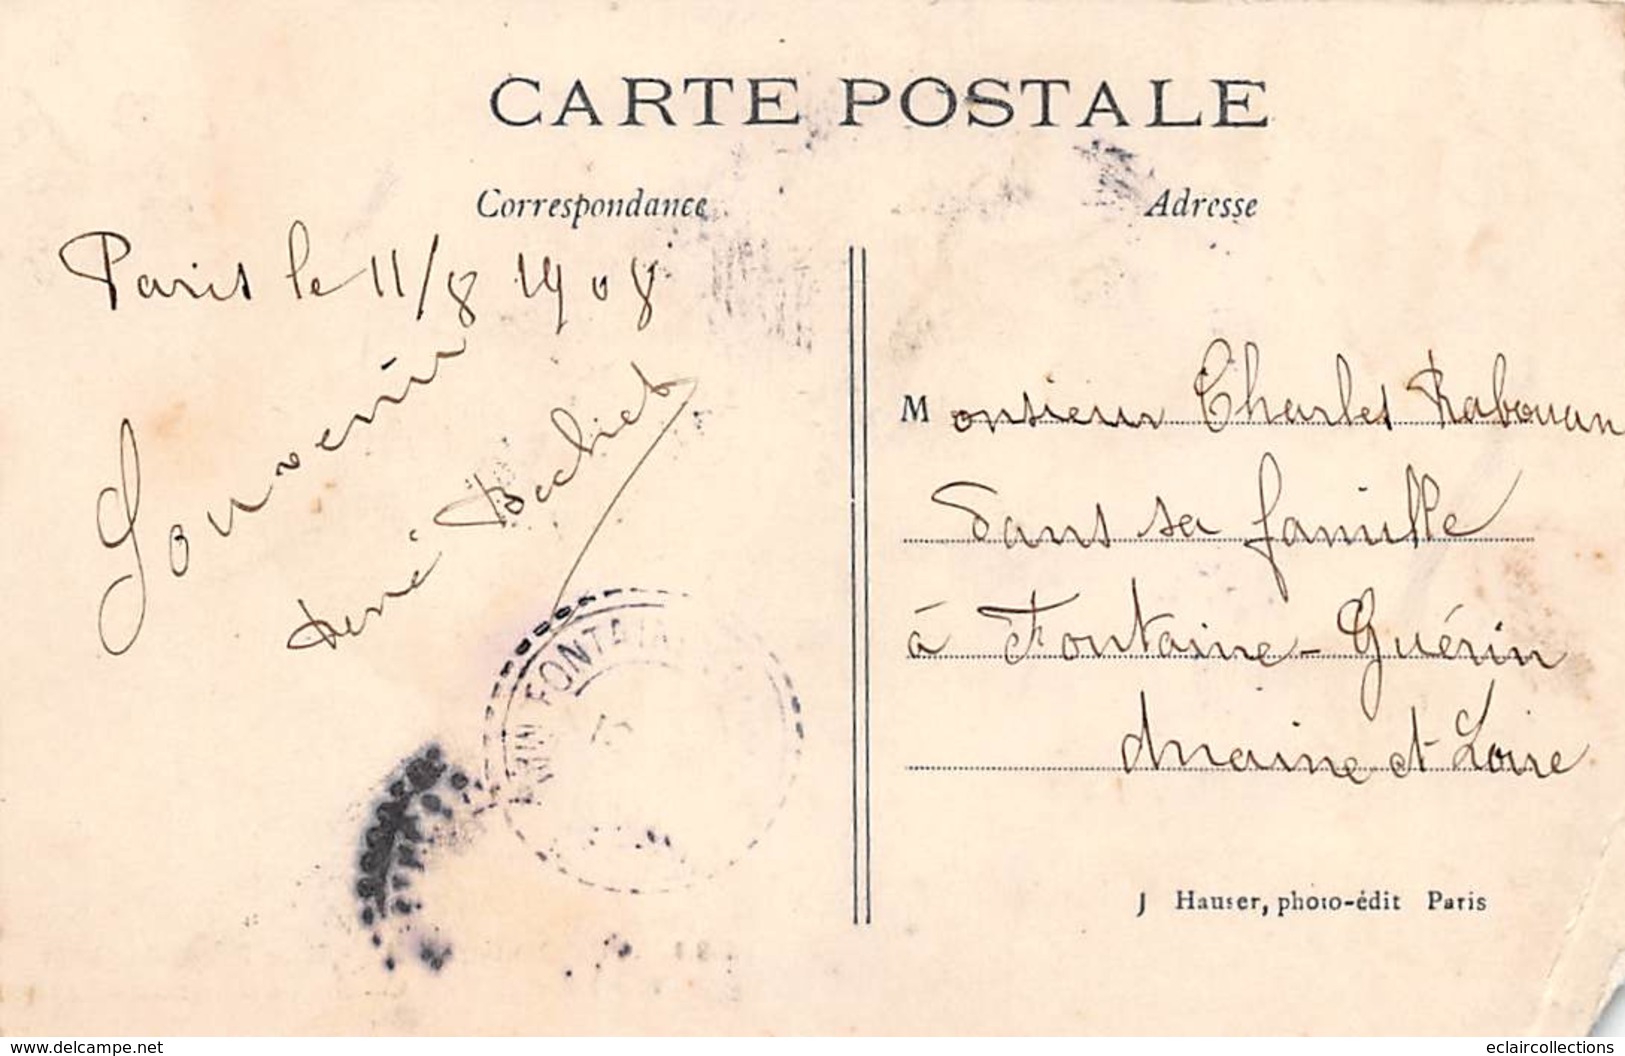 CARTE POSTALE
Correspondance
Adresse
Paris le 11/8 1908
Souvenir
René
Monsieur Charles Rabouan
dans sa famille
à Fontaine-Guérin
Maine et Loire
FONTAIN
J Hauser, photo-édit Paris
www.delcampe.net
eclaircollections